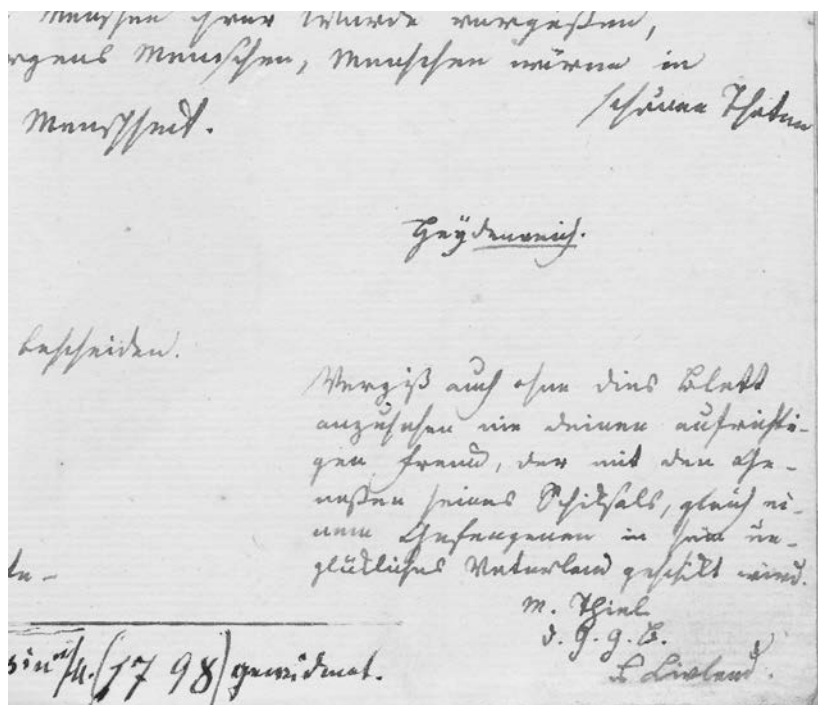 Menschen ihrer Würde vergeßen,
rgens Menschen, Menschen wären in
schönen Thaten
Menschheit.
Heydenreich.
bescheiden.
Vergiß auch ohne dies Blatt
anzusehen nie deinen aufrichti-
gen Freund, der mit den Ge-
noßen seines Schiksals, gleich ei-
nem Gefangenen in sein un-
glükliches Vaterland geschikt wird.
M. Thiel
d. G. G. B.
Livland.
te-
(1798) gewidmet.